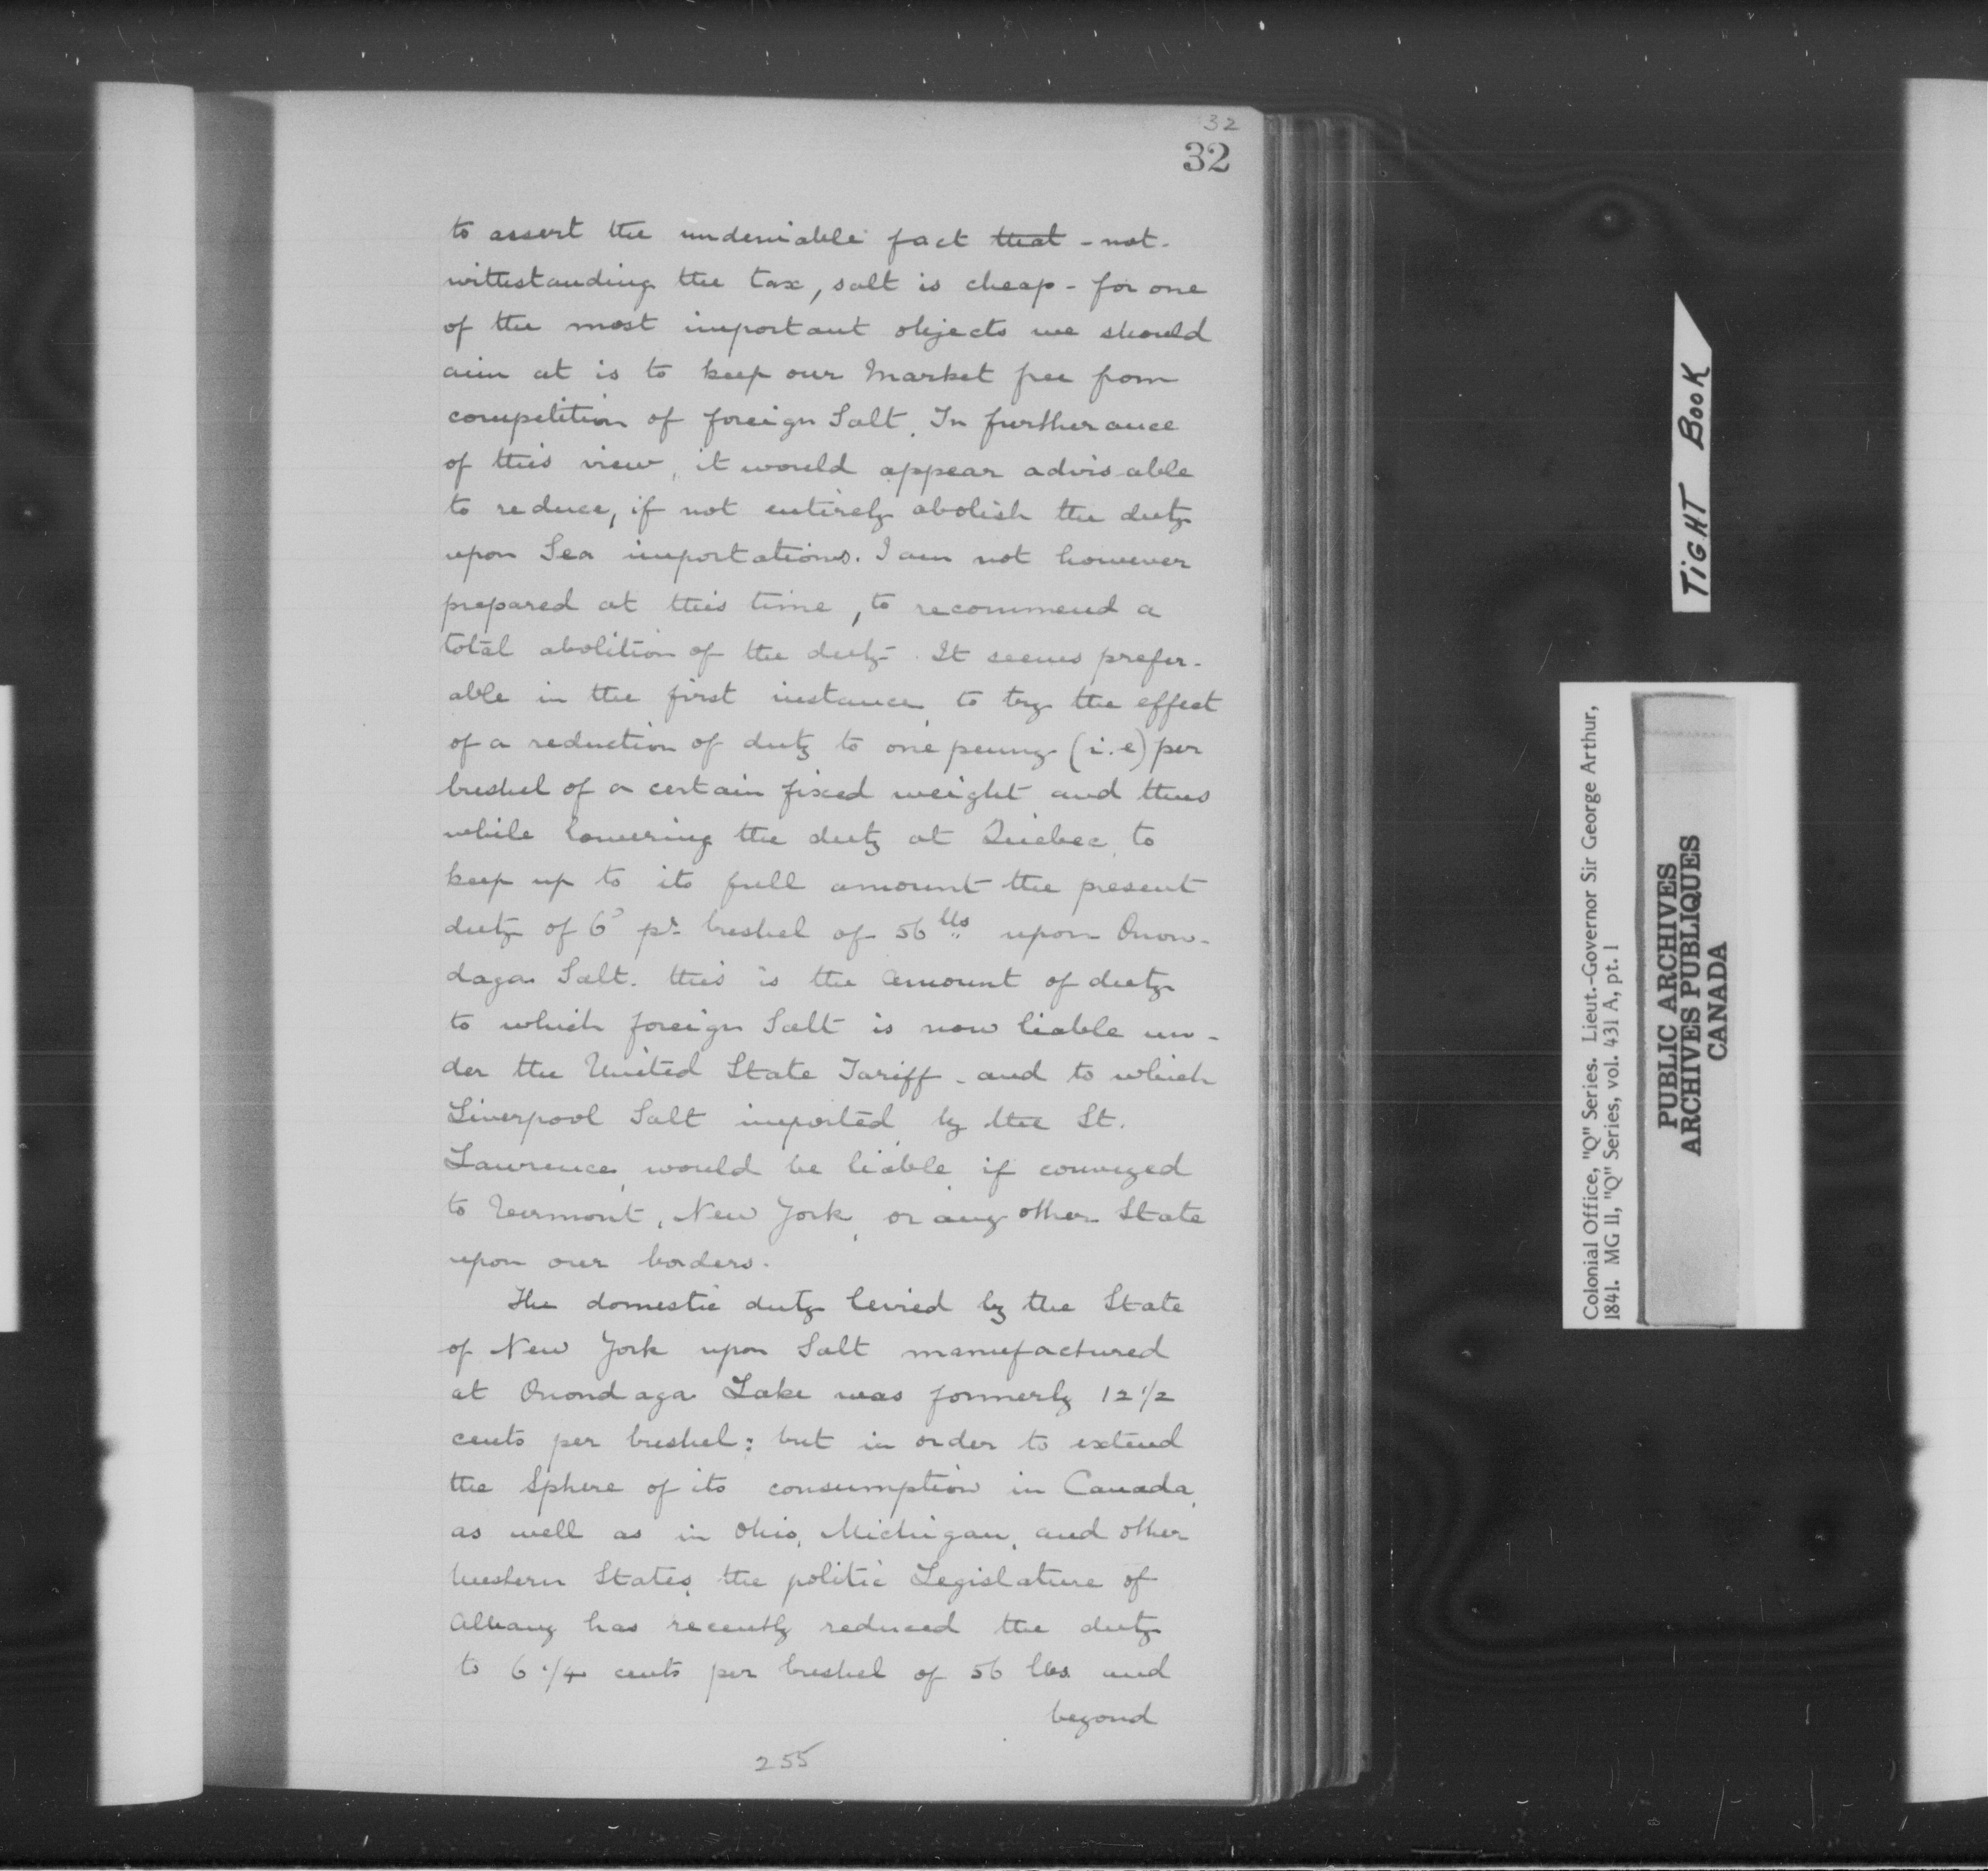 32
32
to assert the undeniable fact that - not-
withstanding the tax, salt is cheap - for one
of the most important objects we should
aim at is to keep our Market free from
competition of foreign Salt. In furtherance
of this view, it would appear advisable
to reduce, if not entirely abolish the duty
upon Sea importations. I am not however
prepared at this time, to recommend a
total abolition of the duty. It seems prefer-
able in the first instance, to try the effect
of a reduction of duty to one penny (i.e) per
bushel of a certain fixed weight and thus
while lowering the duty at Quebec, to
keep up to its full amount the present
duty of 6d pr. bushel of 56 lbs upon Onon-
daga Salt. this is the amount of duty
to which foreign Salt is now liable un-
der the United State Tariff - and to which
Liverpool Salt imported by the St.
Lawrence, would be liable, if conveyed
to Vermont, New York, or any other State
upon our borders.
The domestic duty levied by the State
of New York upon Salt manufactured
at Onondaga Lake was formerly 12 1/2
cents per bushel; but in order to extend
the Sphere of its consumption in Canada,
as well as in Ohio, Michigan, and other
Western States, the politic Legislature of
Albany has recently reduced the duty
to 6 1/4 cents per bushel of 56 lbs and
beyond
255
TIGHT BOOK
Colonial Office, "Q" Series. Lieut.-Governor Sir George Arthur,
1841. MG 11, "Q" Series, vol. 431 A, pt. 1
PUBLIC ARCHIVES
ARCHIVES PUBLIQUES
CANADA